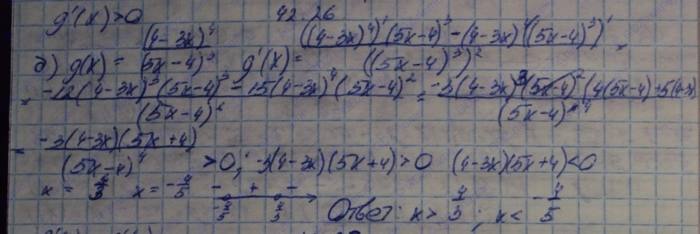 g'(x)>0 42.26
д) g(x) = (4-3x)⁴ / (5x-4)³ g'(x) = ((4-3x)⁴)'(5x-4)³-(4-3x)⁴((5x-4)³)' / ((5x-4)³)² =
= -12(4-3x)³(5x-4)³-15(4-3x)⁴(5x-4)² / (5x-4)⁶ = -3(4-3x)³(5x-4)²(4(5x-4)+5(4-3x) / (5x-4)⁴
= -3(4-3x)(5x+4) / (5x-4)⁴ >0; -3(4-3x)(5x+4)>0 (4-3x)(5x+4)<0
x = 4/3 x = -4/5 - + - -4/5 4/3
Ответ: x > 4/3; x < -4/5